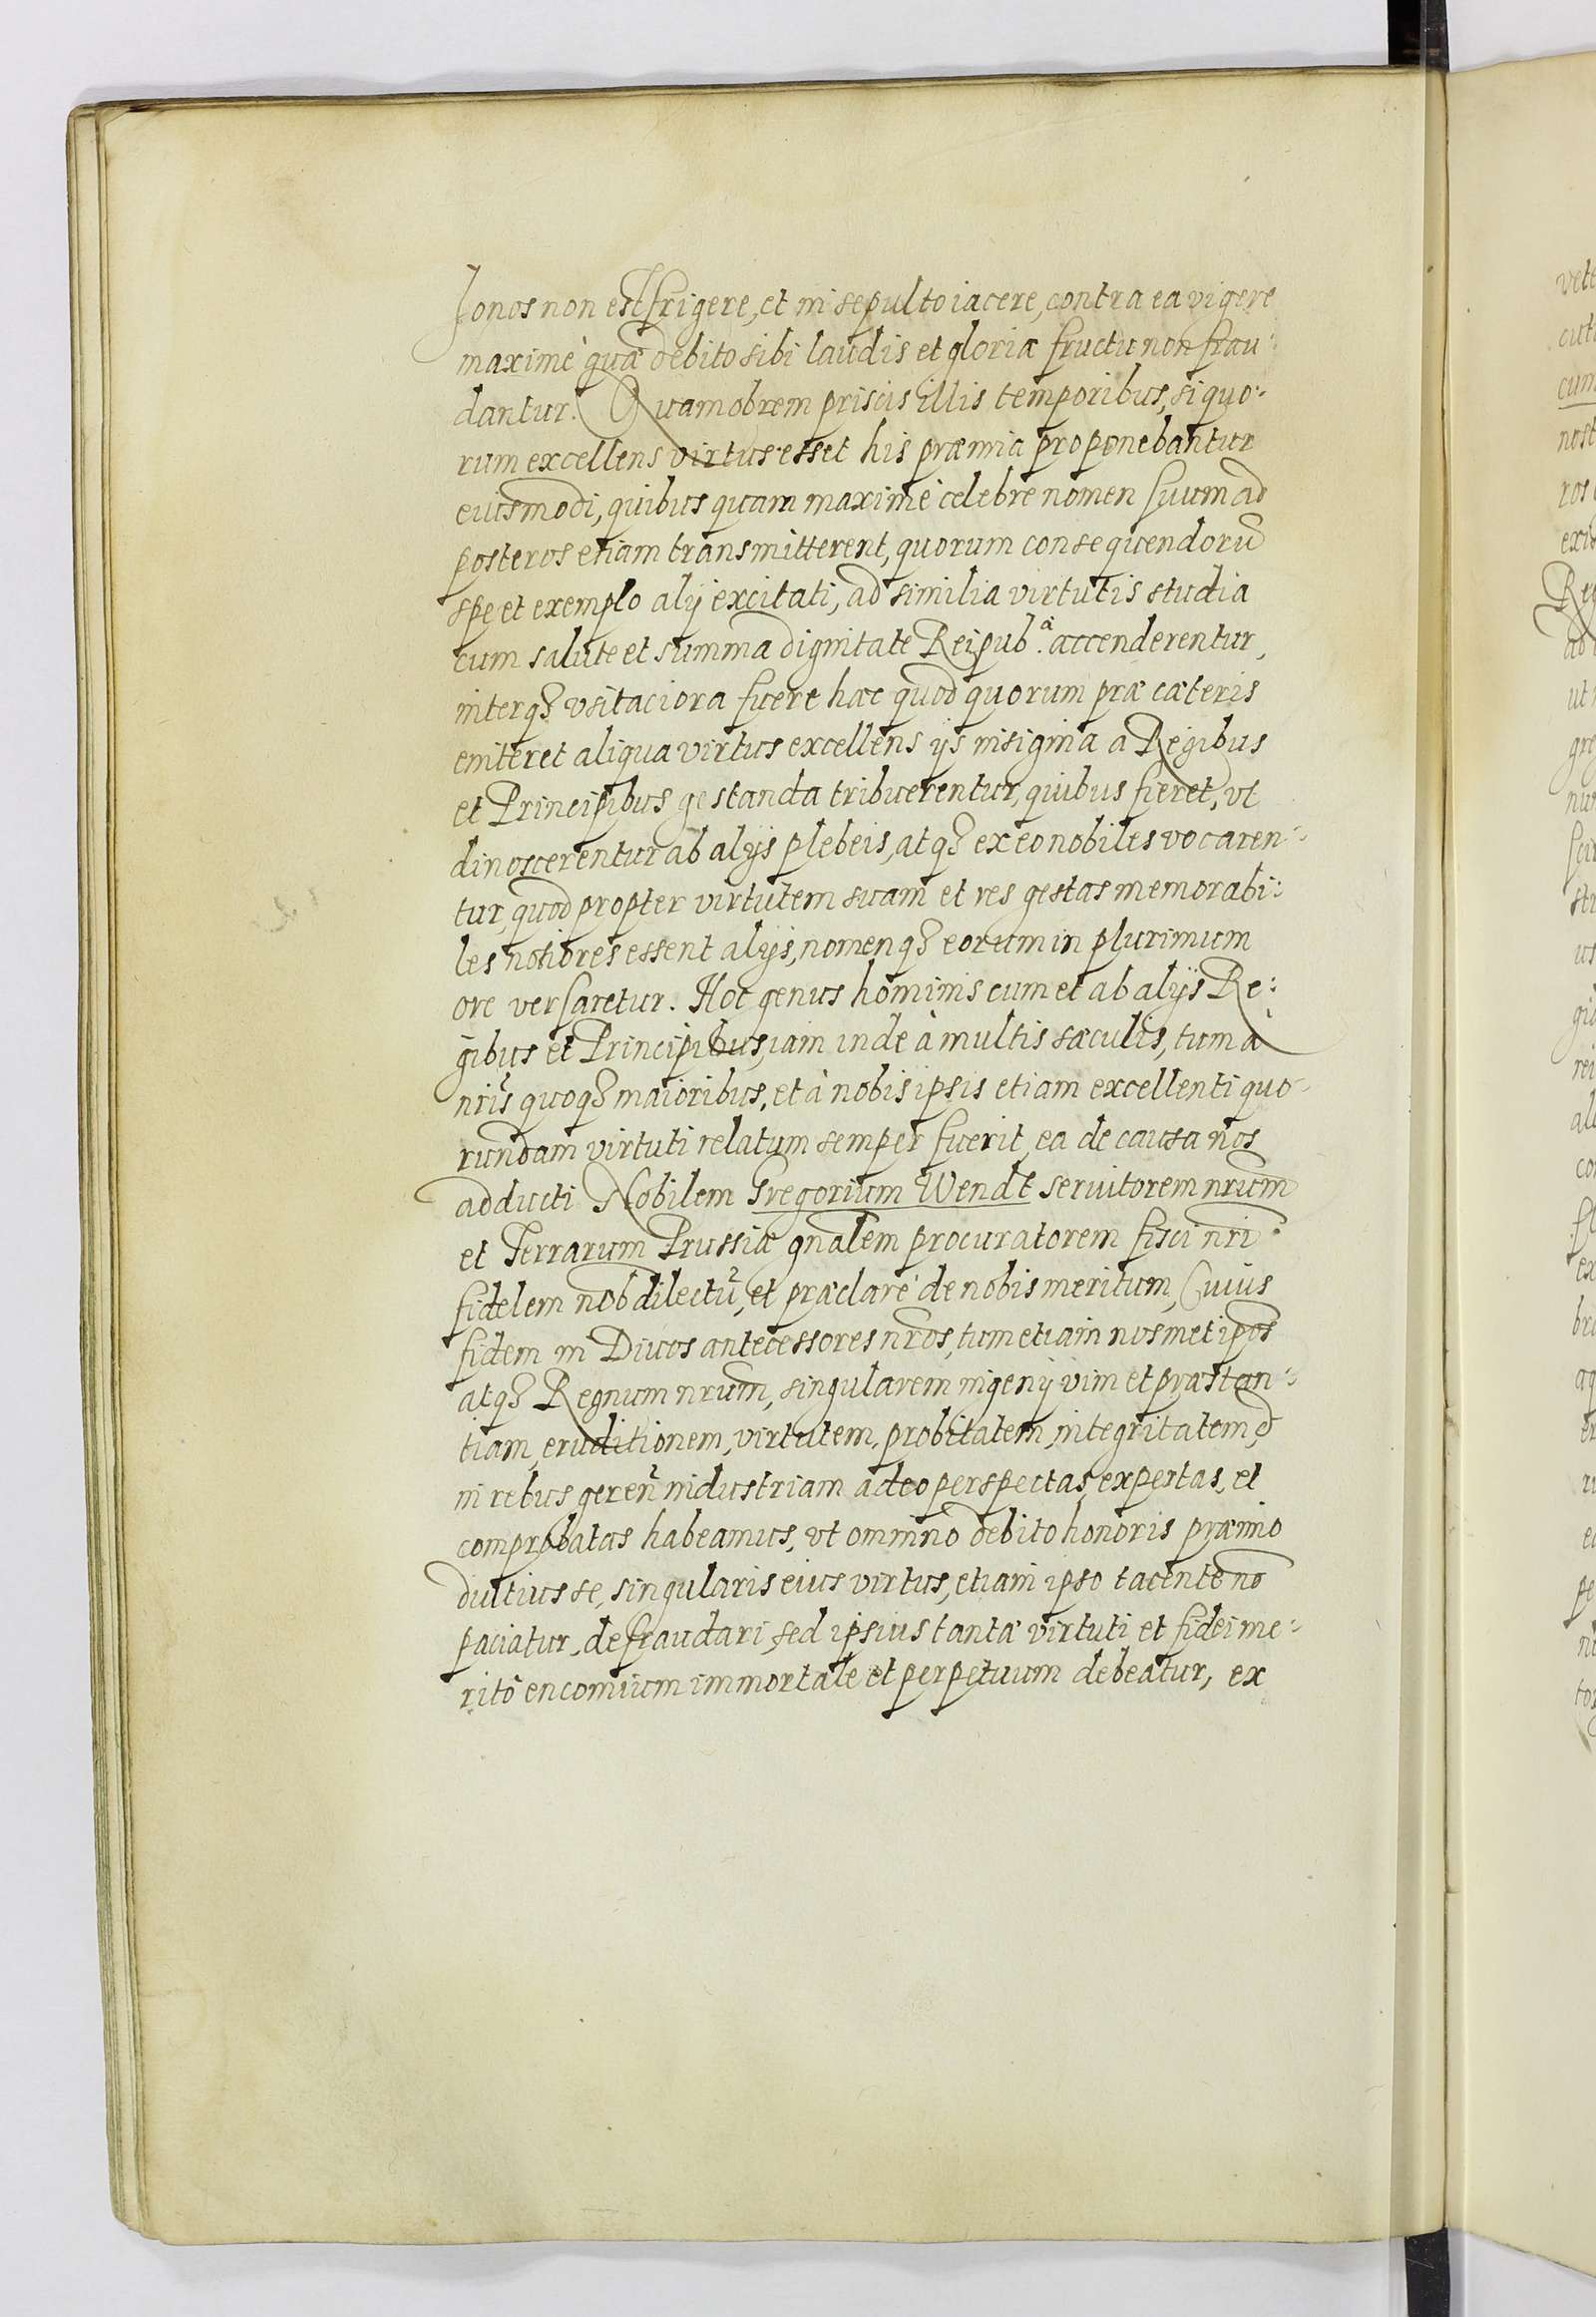 honos non est frigere, et in sepulto iacere, contra ea vigere
maximè quæ debito sibi laudis et gloriæ fructu non frau:
dantur. Quamobrem priscis illis temporibus, si quo:
rum excellens virtus esset his præmia proponebantur
eiusmodi, quibus quam maximè celebre nomen suum ad
posteros etiam transmitterent, quorum consequendorũ
spe et exemplo alij excitati, ad similia virtutis studia
cum salute et summa dignitate Reipub.ª accenderentur,
interq3 vsitaciora fuere hæc quod quorum præ cæteris
eniteret aliqua virtus excellens ijs insignia a Regibus
et Principibus gestanda tribuerentur, quibus fieret, vt
dinoscerentur ab alijs plebeis, atq3 ex eo nobiles vocaren:
tur, quod propter virtutem suam et res gestas memorabi:
les notiores essent alijs, nomenq3 eorum in plurimum
ore versaretur. Hoc genus hominis cum et ab alijs Re:
gibus et Principibus, iam inde à multis sæculis, tum à
nris quoq3 maioribus, et à nobis ipsis etiam excellenti quo:
rundam virtuti relatum semper fuerit, ea de causa nos
adducti Nobilem Gregorium Wendt seruitorem nrum
et Terrarum Prussiæ gnalem procuratorem fisci nri
fidelem nob dilectũ, et præclarè de nobis meritum, Cuius
fidem in Diuos antecessores nros, tum etiam nosmet ipos
atq3 Regnum nrum, singularem ingenij vim et præstan:
tiam, eruditionem, virtutem, probitatem, integritatem, &
in rebus geren industriam adeo perspectas, expertas, et
comprobatas habeamus, vt omnino debito honoris præmio
diutius se, singularis eius virtus, etiam ipso tacente nõ
paciatur, defraudari, sed ipsius tantæ virtuti et fidei me:
ritò encomium immortale et perpetuum debeatur, ex